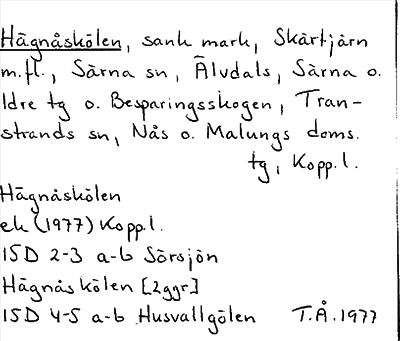 Hägnåskölen, sank mark, Skärtjärn
m.fl., Särna sn, Älvdals, Särna o.
Idre tg o. Besparingsskogen, Tran-
strands sn, Nås o. Malungs doms.
tg, Kopp.l.
Hägnåskölen
ek (1977) Kopp.l.
15D 2-3 a-b Sörsjön
Hägnås kölen [2ggr]
15D 4-5 a-b Husvallgölen T.Å. 1977